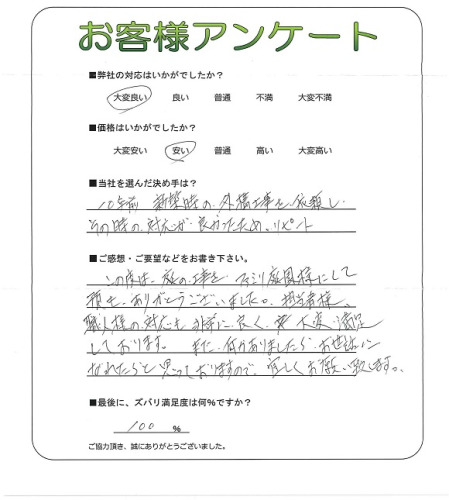 お客様アンケート
■弊社の対応はいかがでしたか？
大変良い 良い 普通 不満 大変不満
■価格はいかがでしたか？
大変安い 安い 普通 高い 大変高い
■当社を選んだ決め手は？
10年前 新築時の、外構工事を依頼し、
その時の対応が良かったため。リピート
■ご感想・ご要望などをお書き下さい。
この度は、庭の工事を ファミリー庭園様にして
頂き、ありがとうございました。担当者様、
職人様の対応も非常に良く、大変満足
しております。 また、何かありましたら、お世話に
なれたらと思っておりますので、宜しくお願い致します。
■最後に、ズバリ満足度は何％ですか？
100 %
ご協力頂き、誠にありがとうございました。